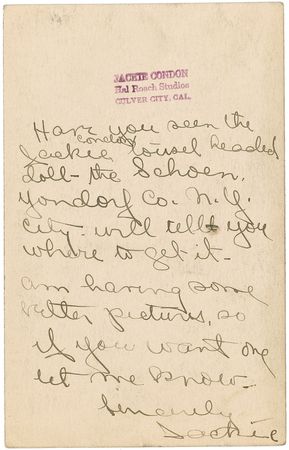 JACKIE CONDON
Hal Roach Studios
CULVER CITY, CAL.
Have you seen the
condon
Jackie tousel headed
doll - the Schoen,
yondorf Co. N.Y.
city will tell you
where to get it -
am having some
better pictures, so
if you want one
let me know -
Sincerely
Jackie